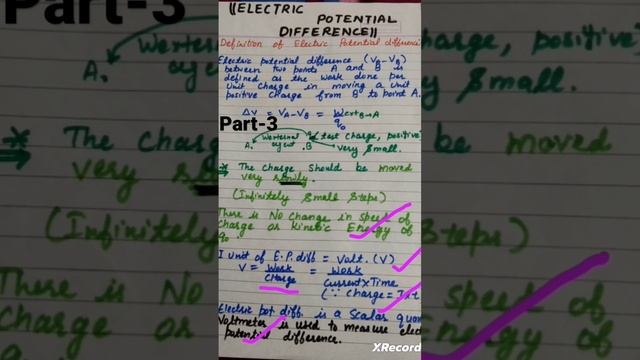 Part-3
||ELECTRIC
POTENTIAL
DIFFERENCE||
Definition of Electric Potential difference
Electric potential difference (VA-VB)
between two points A and B is
defined as the work done per
Unit charge in moving a unit
positive charge from B to point A.
ΔV = VA-VB = Wext B→A
q₀
Part-3
Wexternal
agent
A.
.B
test charge, positive
very small.
The charge should be moved
very slowly.
(Infinitely small steps)
There is No change in speed of
charge or kinetic Energy of
q₀.
S.I unit of E.P.diff = Volt. (V)
V = Work = Work
Charge Current×Time
(∵ Charge = I×t
Electric pot. diff. is a Scalar quan
Voltmeter is used to measure elec
potential difference.
Wexternal
agent
A.
charge, positive
small.
The Char
moved
very s
(Infinitely
Steps)
There is No
speed of
charge or
energy of
XRecord